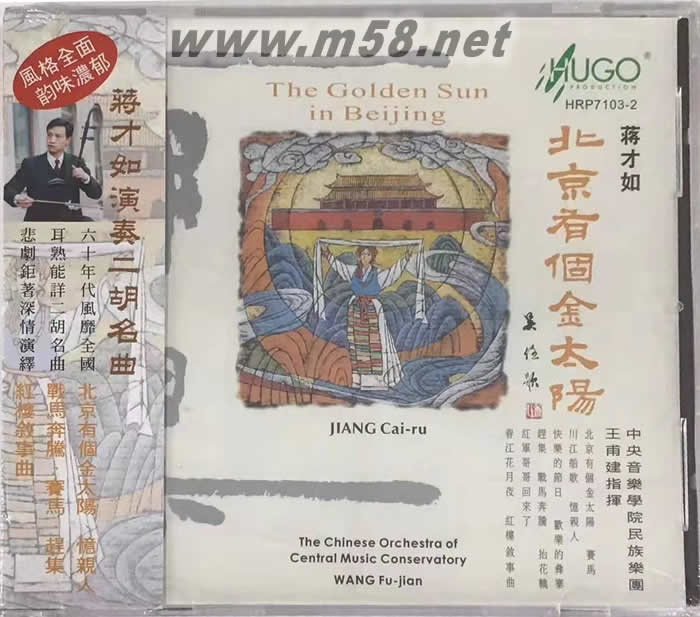 www.m58.net
風格全面
韵味濃郁
蔣才如演奏二胡名曲
六十年代風靡全國
北京有個金太陽 憶親人
耳熟能詳二胡名曲
戰馬奔騰 賽馬 趕集
悲劇鉅著深情演繹
紅樓敘事曲
The Golden Sun
in Beijing
HUGO
PRODUCTION
®
HRP7103-2
蔣才如
北京有個金太陽
JIANG Cai-ru
中央音樂學院民族樂團
王甫建指揮
北京有個金太陽 賽馬
川江船歌 憶親人
快樂的節日 歡樂的彝寨
趕集 戰馬奔騰 抬花轎
紅軍哥哥回來了
春江花月夜 紅樓敘事曲
The Chinese Orchestra of
Central Music Conservatory
WANG Fu-jian